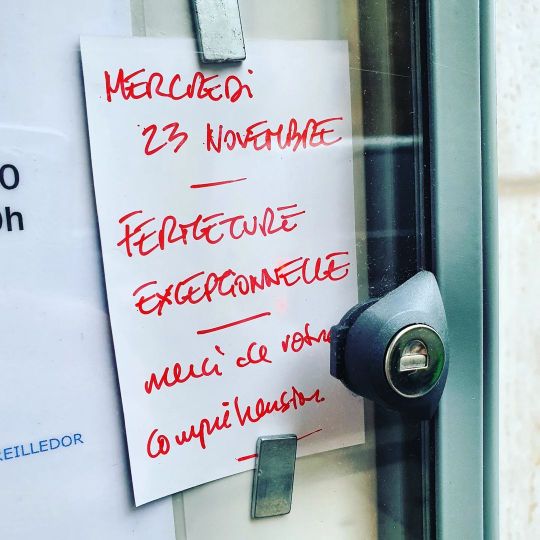 MERCREDI
23 NOVEMBRE
FERMETURE
EXCEPTIONNELLE
merci de votre
compréhension
0
0h
REILLEDOR